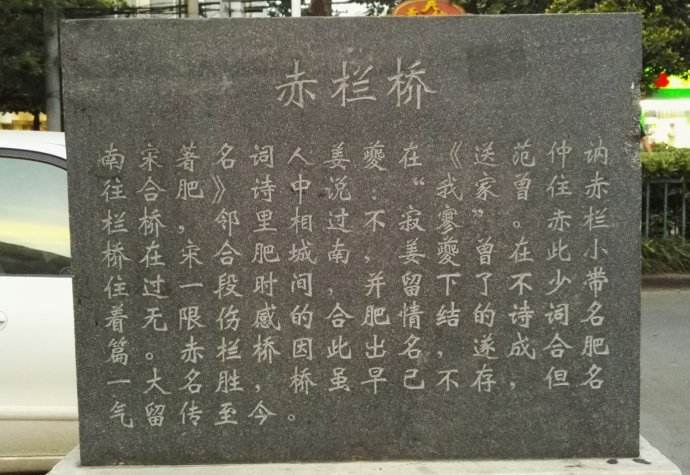 赤栏桥
南宋著名词人姜夔在《送范仲讷
往合肥》诗中说:“我家曾住赤
栏桥,邻里相过不寂寥”。赤栏
桥在宋合肥城南,姜夔曾在此小
住过一段时间,并留下了不少带
着无限伤感的合肥情结的诗词名
篇。赤栏桥因此出名,遂成合肥
一大名胜,桥虽早已不存,但名
气留传至今。